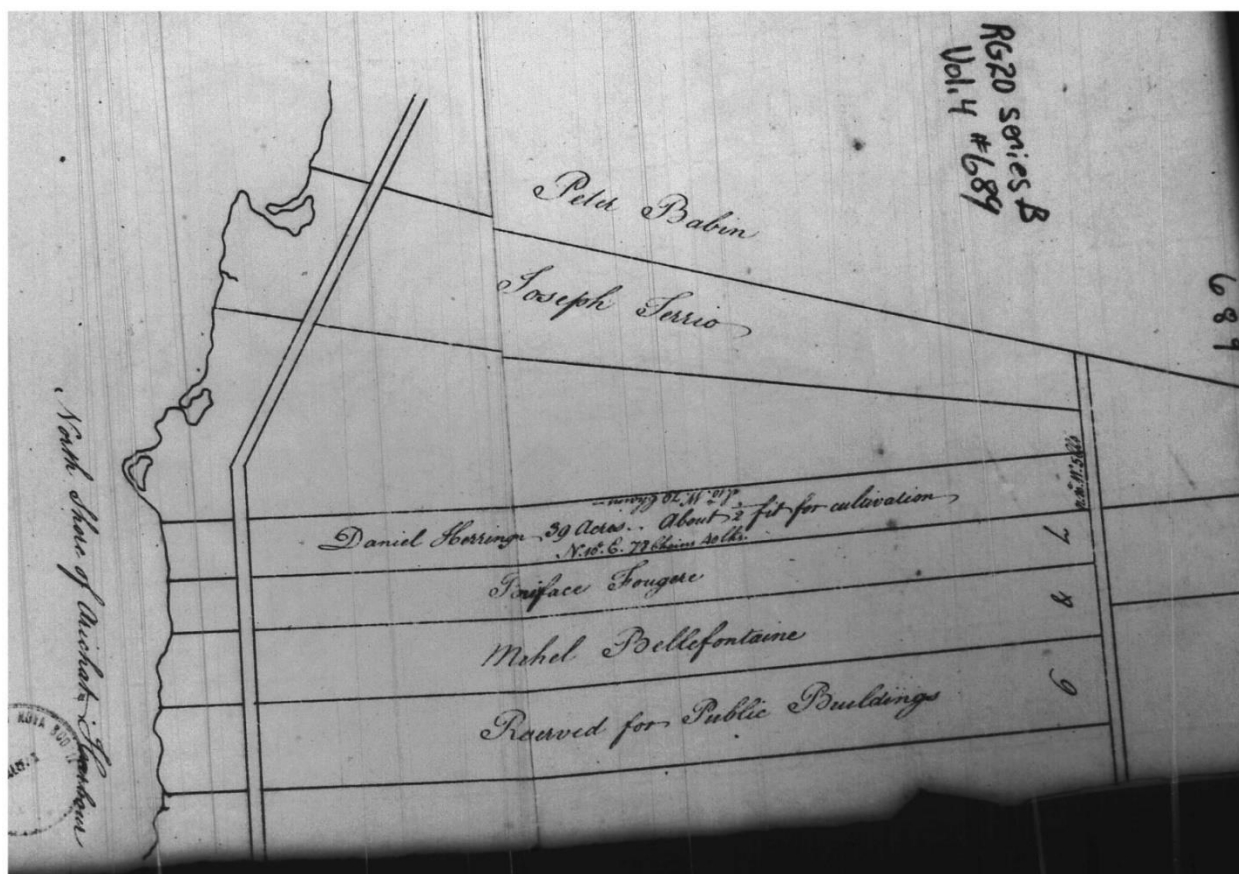 RG20 series B
Vol. 4 #689
689
Peter Babin
Joseph Terrio
Daniel Herring 39 Acres.. About ½ fit for cultivation
N. 10°. E. 78 Chains 40 lks.
7
Boniface Fougere
8
Michel Bellefontaine
9
Reserved for Public Buildings
North Shore of Arichat Harbour